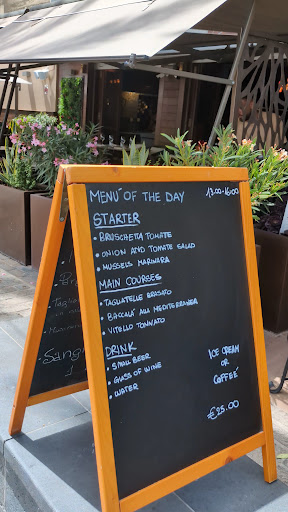 MENÚ OF THE DAY 13.00-16.00
STARTER
• BRUSCHETTA TOMATE
• ONION AND TOMATE SALAD
• MUSSELS MARINARA
MAIN COURSES
• TAGLIATELLE BRASATO
• BACCALÁ ALL MEDITERRANEA
• VITELLO TONNATO
DRINK
• SMALL BEER
• GLASS OF WINE
• WATER
ICE CREAM
OR
COFFEÉ
€25.00